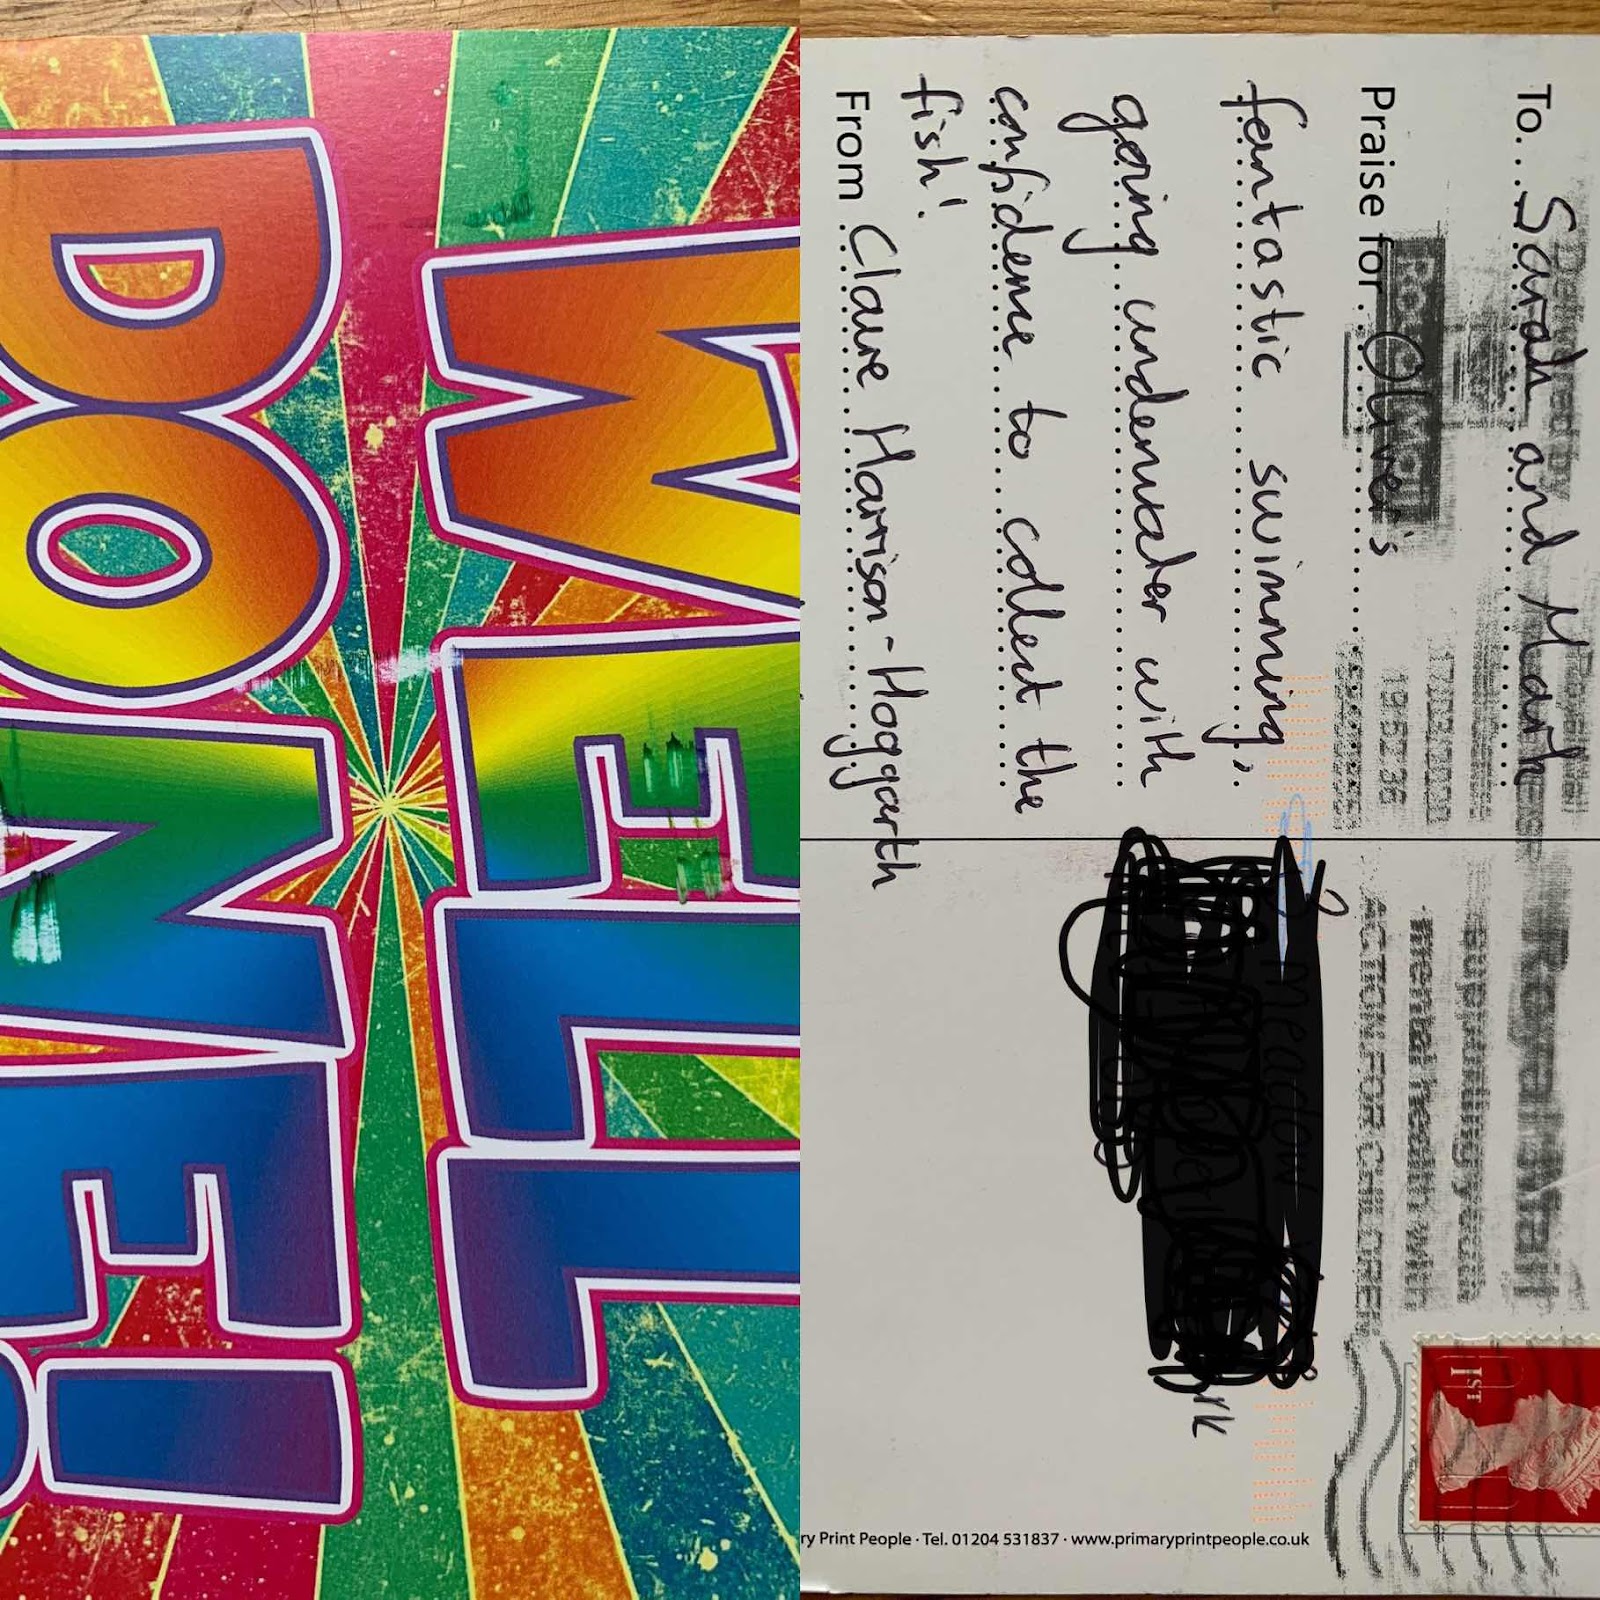 WELL
DONE!
To... Sarah and Mark
Praise for... Oliver's
fantastic swimming,
going underwater with
confidence to collect the
fish!
From Claire Harrison-Hoggarth
Royal Mail
Royal Mail
supporting youth
mental health with
ACTION FOR CHILDREN
1ST
ry Print People · Tel. 01204 531837 · www.primaryprintpeople.co.uk